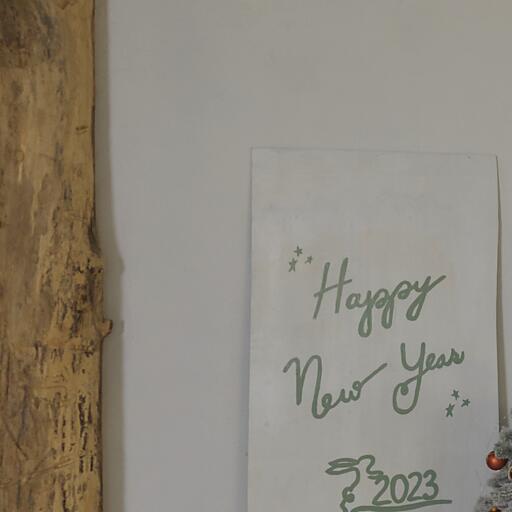 Happy
New Year
2023